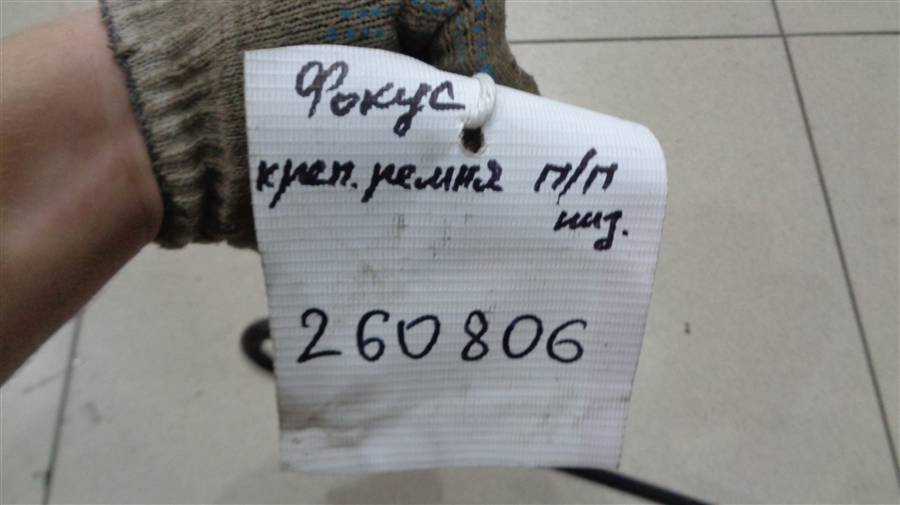 Фокус
креп. ремня п/п
низ.
260806